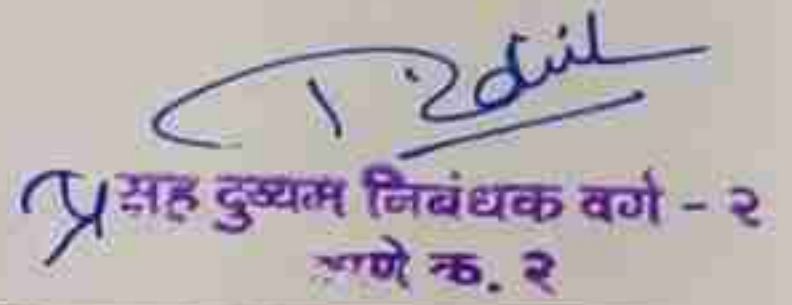 प्र सह दुय्यम निबंधक वर्ग - २
ठाणे क्र. २